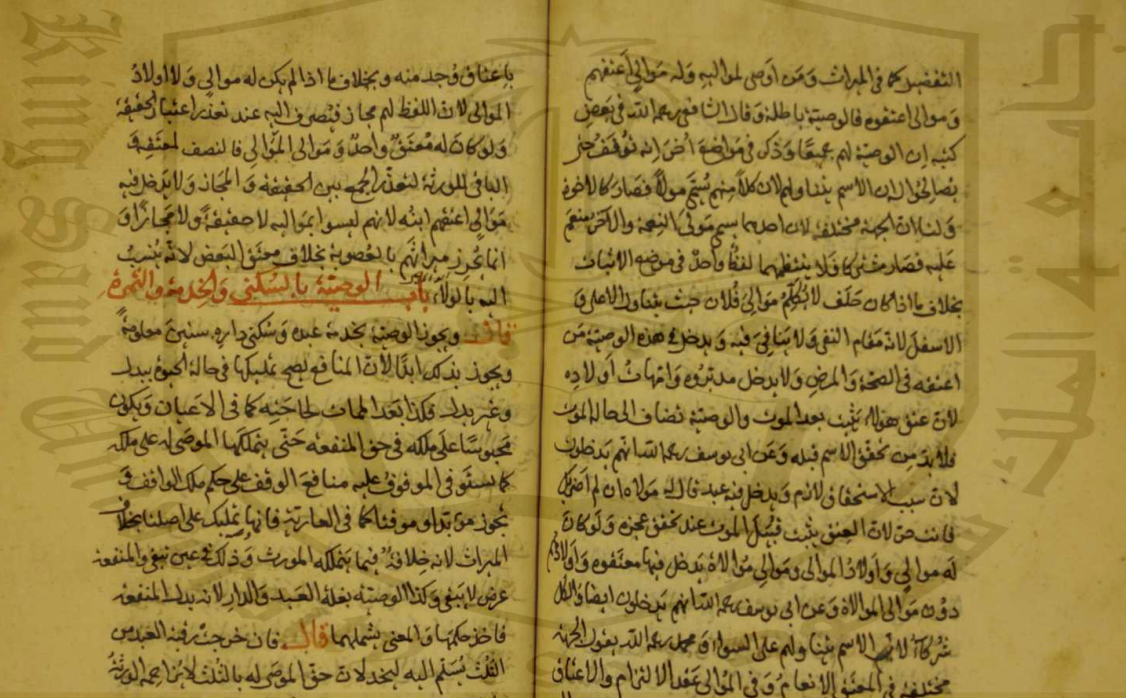 التفضيل كما في الميراث ومن اوصى لمواليه وله موالي اعتقهم
وموالي اعتقوه فالوصية باطلة وقال الشافعي رحمه الله في بعض
كتبه ان الوصية لهم جميعا وذكر في مواضع اخر انه توقف حتى
يصالحوا له ان الاسم يتناولهم لان كلا منهم يسمى مولا فصار كالاخوة
ولنا ان الجهة مختلفة لان احدهما يسمى مولى النعمة والآخر منعم
عليه فصار مشتركا فلا ينتظمهما لفظ واحد في موضع الاثبات
بخلاف ما اذا كان حلف لا يكلم موالي فلان حيث يتناول الاعلى و
الاسفل لانه مقام النفي ولا تنافي فيه ويدخل في هذه الوصية من
اعتقه في الصحة والمرض ولا يدخل مدبروه وامهات اولاده
لان عتق هؤلاء يثبت بعد الموت والوصية تضاف الى حالة الموت
فلا بد من تحقق الاسم قبله وعن ابي يوسف رحمه الله انهم يدخلون
لان سبب الاستحقاق لازم ويدخل فيه عبد قال له مولاه ان لم اضربك
فانت حر لان العتق يثبت قبيل الموت عند تحقق عجزه ولو كان
له موالي واولاد الموالي وموالي موالاة يدخل فيها معتقوه واولادهم
دون موالي الموالاة وعن ابي يوسف رحمه الله انهم يدخلون ايضا والكل
شركاء لان الاسم يتناولهم على السواء ومحمد رحمه الله يقول الجهة
مختلفة في المعتق الانعام وفي الموالي عقد الالتزام والاعتاق
باعتاق وجد منه وبخلاف ما اذا لم يكن له موالي ولا اولاد
الموالي لان اللفظ لهم مجاز فيصرف اليه عند تعذر اعتبار الحقيقة
ولو كان له معتق واحد وموالي الموالي فالنصف لمعتقه و
الباقي للورثة لتعذر الجمع بين الحقيقة والمجاز ولا يدخل فيه
موالي اعتقهم ابنه لانهم ليسوا بمواليه لا حقيقة ولا مجازا و
انما يحرز ميراثهم بالعصوبة بخلاف معتق البعض لانه ينسب
اليه بالولاء باب الوصية بالسكنى والخدمة والثمرة
قال وبجوز الوصية بخدمة عبده وسكنى داره سنين معلومة
ويجوز بذلك ابدا لان المنافع يصح تمليكها في حالة الحيوة ببدل
وغير بدل فكذا بعد الممات لحاجته كما في الاعيان ويكون
محبوسا على ملكه في حق المنفعة حتى يتملكها الموصى له على ملكه
كما يستوفي الموقوف عليه منافع الوقف على حكم ملك الواقف و
يجوز مؤبدا وموقتا كما في العارية فانها تمليك على اصلنا بخلاف
الميراث لانه خلافة فيما يتملكه المورث وذلك في عين تبقى والمنفعة
عرض لا يبقى وكذا الوصية بغلة العبد والدار لانه بدل المنفعة
فاخذ حكمها والمعنى يشملهما قال فان خرجت رقبة العبد من
الثلث يسلم اليه ليخدمه لان حق الموصى له بالثلث لا يزاحمه الورثة